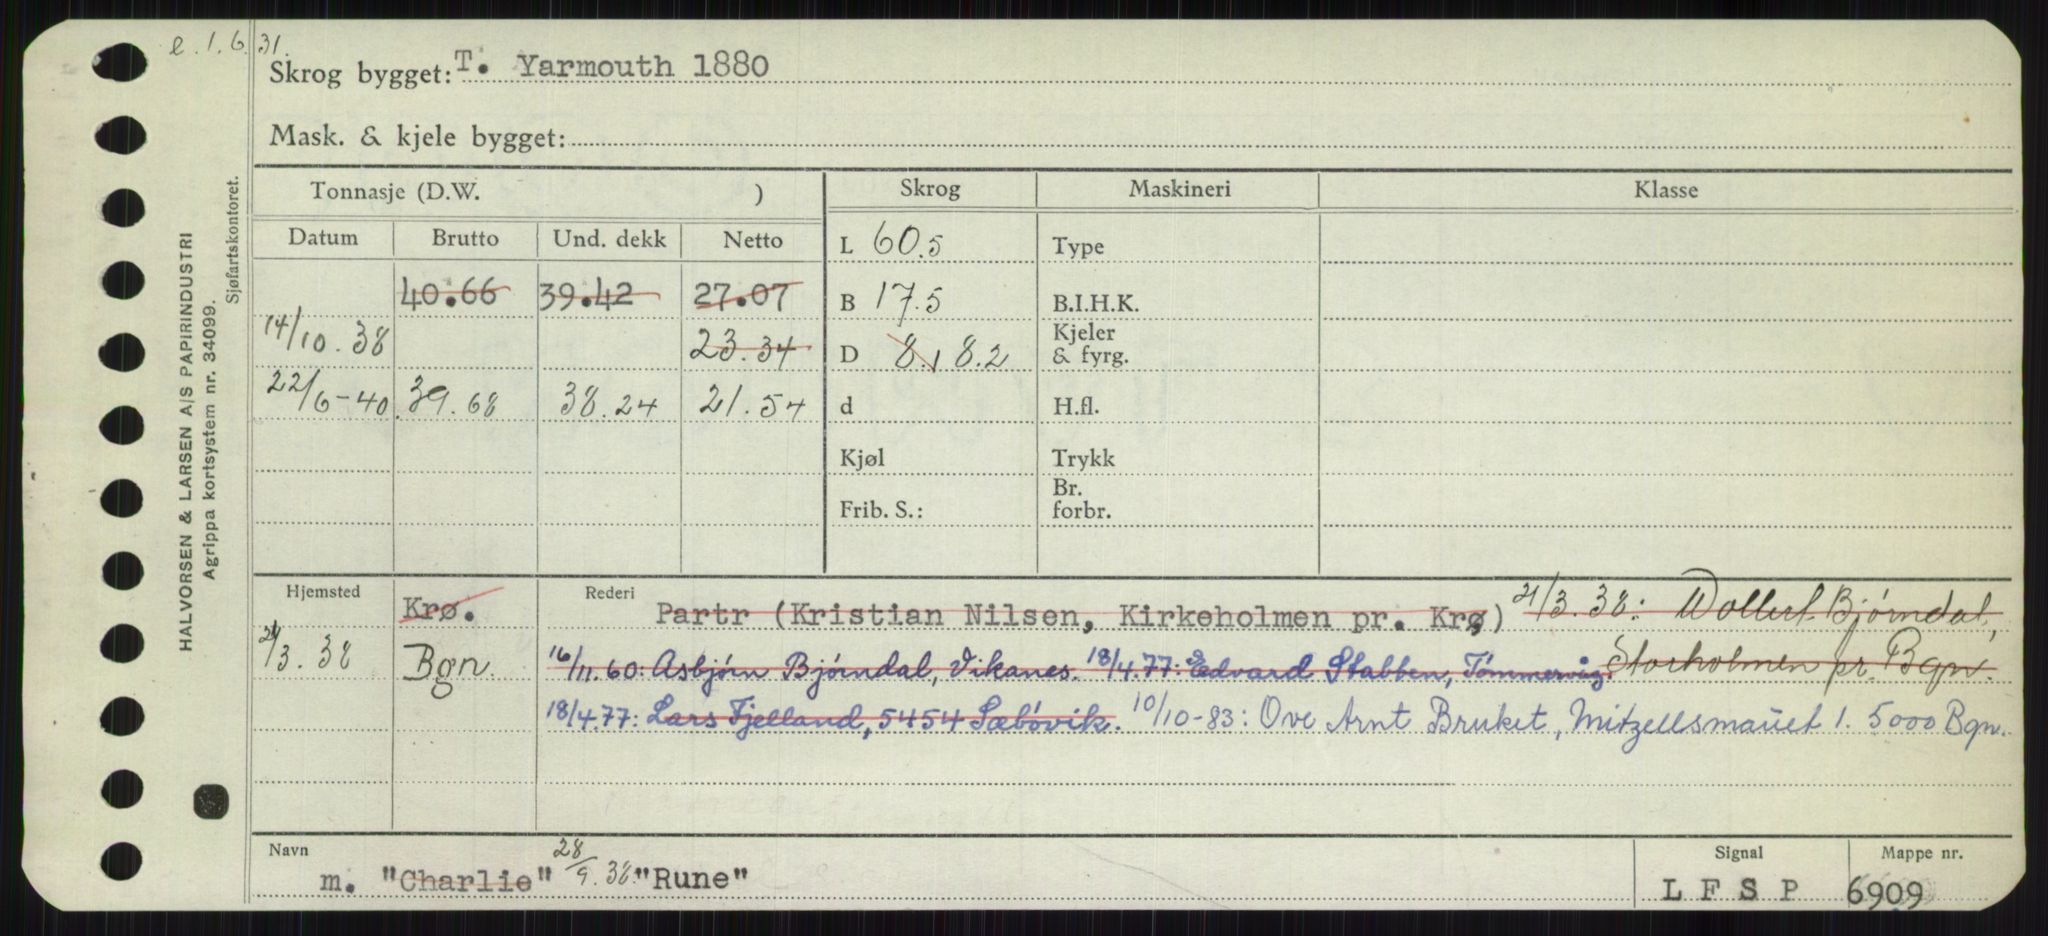 e. 1.6.31.
Skrog bygget: T. Yarmouth 1880
Mask. & kjele bygget:
HALVORSEN & LARSEN A/S PAPIRINDUSTRI
Agrippa kortsystem nr. 34099.
Sjøfartskontoret.
Tonnasje (D.W. ) Skrog Maskineri Klasse
Datum Brutto Und. dekk Netto L 60.5 Type
40.66 39.42 27.07 B 17.5 B.I.H.K.
14/10.38 23.34 D 8.1 8.2 Kjeler & fyrg.
22/6-40. 39.68 38.24 21.54 d H.fl.
Kjøl Trykk
Frib. S.: Br. forbr.
Hjemsted Krø. Rederi Partr (Kristian Nilsen, Kirkeholmen pr. Krø) 21/3.38: Wollert Bjørndal,
21/3.38 Bgn. 16/11.60: Asbjørn Bjørndal, Vikanes. 18/4.77: Edvard Stabben, Tømmervåg. Storholmen pr. Bgn.
18/4.77: Lars Fjelland, 5454 Sæbøvik. 10/10-83: Ove Arnt Bruket, Mitzellsmauet 1. 5000 Bgn.
Navn Signal Mappe nr.
m. "Charlie" 28/9.38. "Rune" L F S P 6909